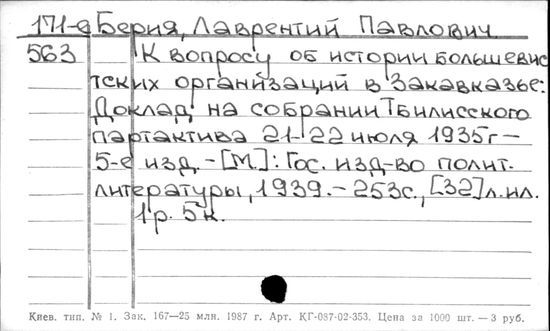 171-е Берия, Лаврентий Павлович
563 К вопросу об истории большевис
тских организаций в Закавказье:
Доклад на собрании Тбилисского
партактива 21-22 июля 1935г —
5-е изд. - [М.]: Гос. изд-во полит.
литературы, 1939. - 253с., [32]л.ил.
1р. 5к.
Киев. тип. № 1. Зак. 167—25 млн. 1987 г. Арт. КГ-087-02-353. Цена за 1000 шт. — 3 руб.